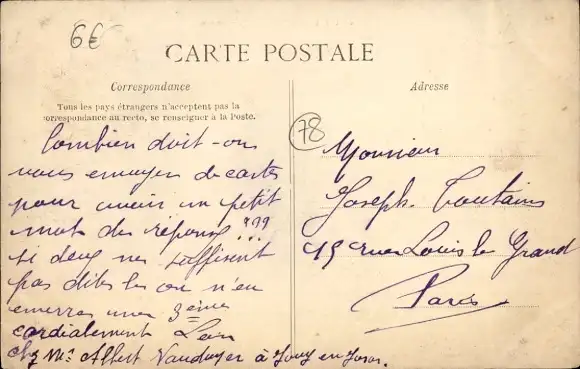 6€
CARTE POSTALE
Correspondance
Tous les pays étrangers n'acceptent pas la
correspondance au recto, se renseigner à la Poste.
Combien doit-on
vous envoyer de cartes
pour avoir un petit
mot de réponse ???
si deux ne suffisent
pas dites le on n'en
enverra une 3ème
cordialement Léon
chez Mr Albert Vanduyer à Jouy en Josas.
Adresse
78
Monsieur
Joseph Coutains
15 rue Louis le Grand
Paris